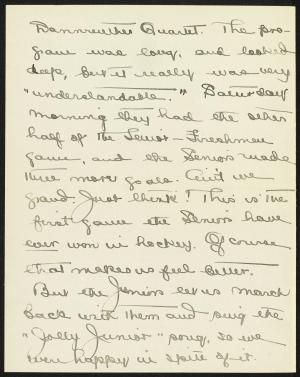 Dannreuther Quartet. The pro-
gram was long, and looked
deep, but it really was very
"understandable." Saturday
morning they had the other
half of the Senior-Freshman
game, and the Seniors made
three more goals. Ain't we
grand. Just think! This is the
first game the Seniors have
ever won in hockey. Of course
that makes us feel better.
But the Juniors let us march
back with them and sing the
"Jolly Junior" song, so we
were happy in spite of it.